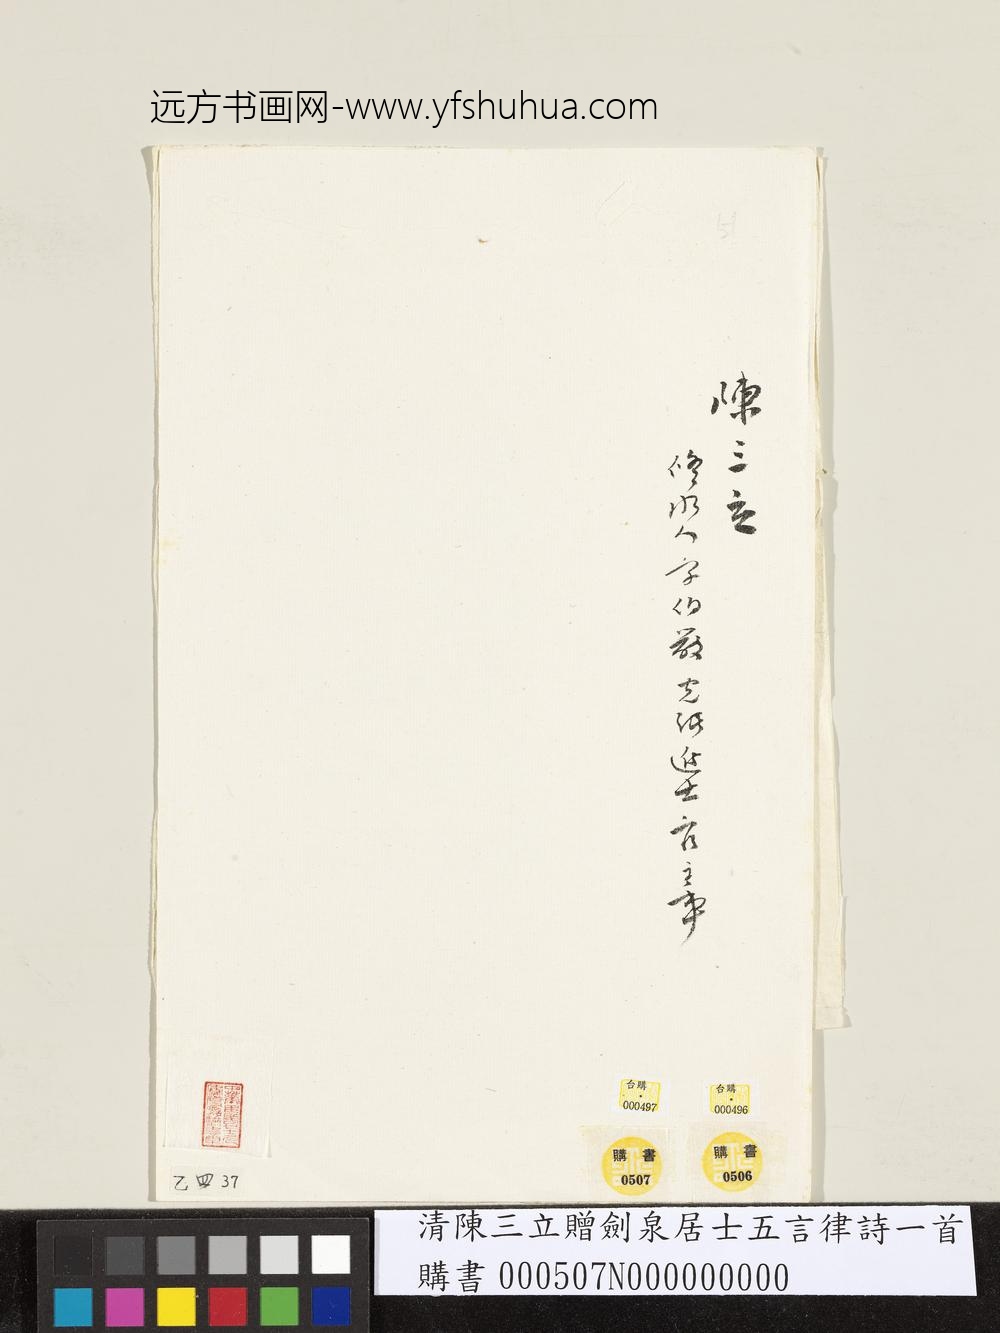 远方书画网-www.yfshuhua.com
陳三立
修水人字伯嚴光緒進士官主事
台購
000497
台購
000496
購書
0507
購書
0506
乙四37
清陳三立贈劍泉居士五言律詩一首
購書000507N000000000